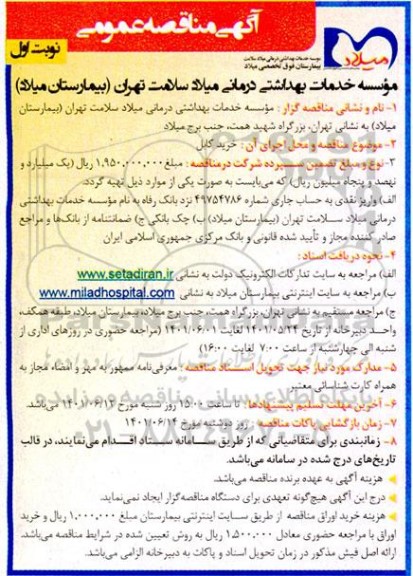 آگهی مناقصه عمومی
نوبت اول
میلاد
موسسه خدمات بهداشتی درمانی میلاد سلامت
بیمارستان فوق تخصصی میلاد
مؤسسه خدمات بهداشتی درمانی میلاد سلامت تهران (بیمارستان میلاد)
۱- نام و نشانی مناقصه گزار : مؤسسه خدمات بهداشتی درمانی میلاد سلامت تهران (بیمارستان
میلاد) به نشانی تهران، بزرگراه شهید همت، جنب برج میلاد
۲- موضوع مناقصه و محل اجرای آن : خرید کابل
۳- نوع و مبلغ تضمین سپرده شرکت در مناقصه : مبلغ ۱,۹۵۰,۰۰۰,۰۰۰ ریال (یک میلیارد و
نهصد و پنجاه میلیون ریال) که می‌بایست به صورت یکی از موارد ذیل تهیه گردد.
الف) واریز نقدی به حساب جاری شماره ۴۹۷۵۴۷۸۶ نزد بانک رفاه به نام مؤسسه خدمات بهداشتی
درمانی میلاد سلامت تهران (بیمارستان میلاد) ب) چک بانکی ج) ضمانتنامه از بانک‌ها و مراجع
صادر کننده مجاز و تأیید شده قانونی و بانک مرکزی جمهوری اسلامی ایران
۴- نحوه دریافت اسناد :
الف) مراجعه به سایت تدارکات الکترونیک دولت به نشانی www.setadiran.ir
ب) مراجعه به سایت اینترنتی بیمارستان میلاد به نشانی www.miladhospital.com
ج) مراجعه مستقیم به نشانی تهران، بزرگراه همت، جنب برج میلاد، بیمارستان میلاد، طبقه همکف،
واحد دبیرخانه از تاریخ ۱۴۰۱/۰۵/۲۴ لغایت ۱۴۰۱/۰۶/۰۱ (مراجعه حضوری در روزهای اداری از
شنبه الی چهارشنبه از ساعت ۷:۰۰ لغایت ۱۶:۰۰)
۵- مدارک مورد نیاز جهت تحویل اسناد مناقصه : معرفی‌نامه ممهور به مهر و امضاء مجاز به
همراه کارت شناسائی معتبر
۶- آخرین مهلت تسلیم پیشنهادها : تا ساعت ۱۵:۰۰ روز شنبه مورخ ۱۴۰۱/۰۶/۱۲ می‌باشد.
۷- زمان بازگشایی پاکات مناقصه : روز دوشنبه مورخ ۱۴۰۱/۰۶/۱۴
۸- زمانبندی برای متقاضیانی که از طریق سامانه ستاد اقدام می‌نمایند، در قالب
تاریخ‌های درج شده در سامانه می‌باشد.
هزینه آگهی به عهده برنده مناقصه می‌باشد.
درج این آگهی هیچ‌گونه تعهدی برای دستگاه مناقصه‌گزار ایجاد نمی‌نماید.
هزینه خرید اوراق مناقصه از طریق سایت اینترنتی بیمارستان مبلغ ۱,۰۰۰,۰۰۰ ریال و خرید
اوراق با مراجعه حضوری معادل ۱,۵۰۰,۰۰۰ ریال به روش تعیین شده در شرایط مناقصه می‌باشد.
ارائه اصل فیش مذکور در زمان تحویل اسناد و پاکات به دبیرخانه الزامی می‌باشد.